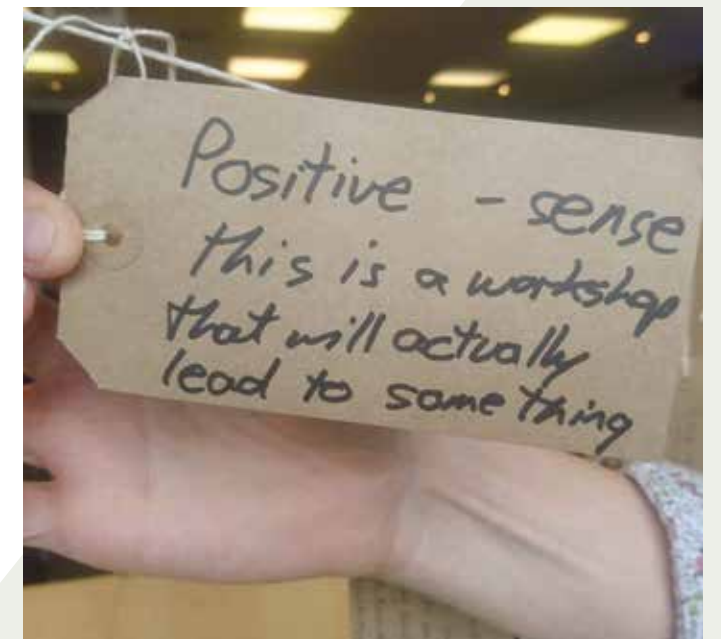 Positive - sense
this is a workshop
that will actually
lead to something